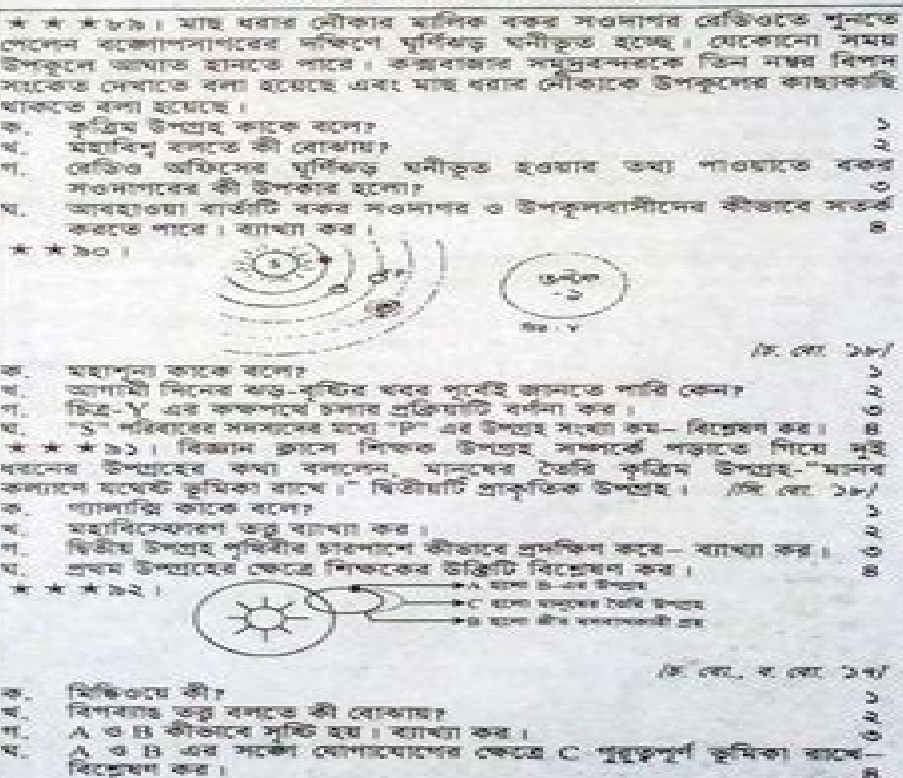 ★ ★ ★ ৮৯। মাছ ধরার নৌকার মালিক বকর সওদাগর রেডিওতে শুনতে
পেলেন বঙ্গোপসাগরের দক্ষিণে ঘূর্ণিঝড় ঘনীভূত হচ্ছে। যেকোনো সময়
উপকূলে আঘাত হানতে পারে। কক্সবাজার সমুদ্রবন্দরকে তিন নম্বর বিপদ
সংকেত দেখাতে বলা হয়েছে এবং মাছ ধরার নৌকাকে উপকূলের কাছাকাছি
থাকতে বলা হয়েছে।
ক. কৃত্রিম উপগ্রহ কাকে বলে? ১
খ. মহাবিশ্ব বলতে কী বোঝায়? ২
গ. রেডিও অফিসের ঘূর্ণিঝড় ঘনীভূত হওয়ার তথ্য পাওয়াতে বকর
সওদাগরের কী উপকার হলো? ৩
ঘ. আবহাওয়া বার্তাটি বকর সওদাগর ও উপকূলবাসীদের কীভাবে সতর্ক
করতে পারে। ব্যাখ্যা কর। ৪
★ ★ ৯০।
S
P
চিত্র- Y
ক. মহাশূন্য কাকে বলে? ১
খ. আগামী দিনের ঝড়-বৃষ্টির খবর পূর্বেই জানতে পারি কেন? ২
গ. চিত্র-Y এর কক্ষপথে চলার প্রক্রিয়াটি বর্ণনা কর। ৩
ঘ. "S" পরিবারের সদস্যদের মধ্যে "P" এর উপগ্রহ সংখ্যা কম– বিশ্লেষণ কর। ৪
★ ★ ★ ৯১। বিজ্ঞান ক্লাসে শিক্ষক উপগ্রহ সম্পর্কে পড়াতে গিয়ে দুই
ধরনের উপগ্রহের কথা বললেন, মানুষের তৈরি কৃত্রিম উপগ্রহ-"মানব
কল্যাণে যথেষ্ট ভূমিকা রাখে।" দ্বিতীয়টি প্রাকৃতিক উপগ্রহ। /সি. বো. ১৮/
ক. গ্যালাক্সি কাকে বলে? ১
খ. মহাবিস্ফোরণ তত্ত্ব ব্যাখ্যা কর। ২
গ. দ্বিতীয় উপগ্রহ পৃথিবীর চারপাশে কীভাবে প্রদক্ষিণ করে– ব্যাখ্যা কর। ৩
ঘ. প্রথম উপগ্রহের ক্ষেত্রে শিক্ষকের উক্তিটি বিশ্লেষণ কর। ৪
★ ★ ★ ৯২।
A হলো B-এর উপগ্রহ
C হলো মানুষের তৈরি উপগ্রহ
B হলো জীব বসবাসকারী গ্রহ
ক. মিল্কিওয়ে কী? ১
খ. বিগব্যাঙ তত্ত্ব বলতে কী বোঝায়? ২
গ. A ও B কীভাবে সৃষ্টি হয়। ব্যাখ্যা কর। ৩
ঘ. A ও B এর সঙ্গে যোগাযোগের ক্ষেত্রে C গুরুত্বপূর্ণ ভূমিকা রাখে–
বিশ্লেষণ কর। ৪